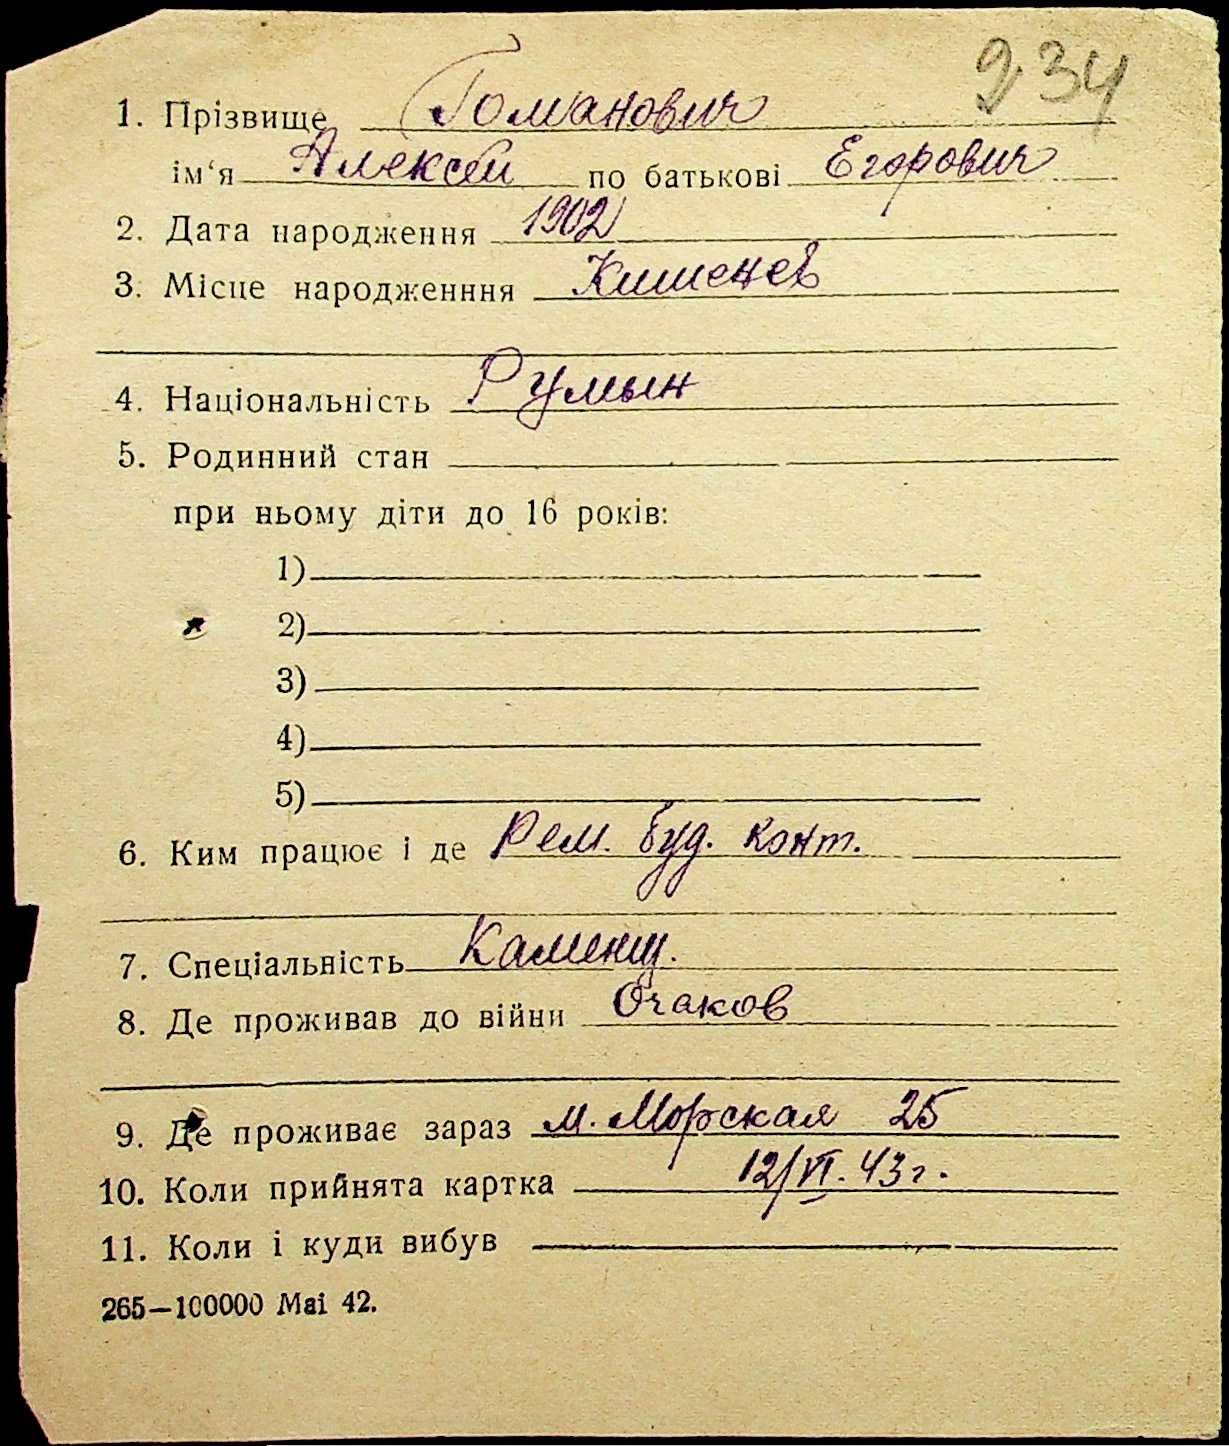 934
1. Прізвище Гоманович
ім‘я Алексей по батькові Егорович
2. Дата народження 1902
3. Місце народженння Кишенев
4. Національність Румын
5. Родинний стан
при ньому діти до 16 років:
1)
2)
3)
4)
5)
6. Ким працює і де Рем. буд. конт.
7. Спеціальність Каменщ.
8. Де проживав до війни Очаков
9. Де проживає зараз м. Морская 25
10. Коли прийнята картка 12/VI. 43 г.
11. Коли і куди вибув
265—100000 Mai 42.